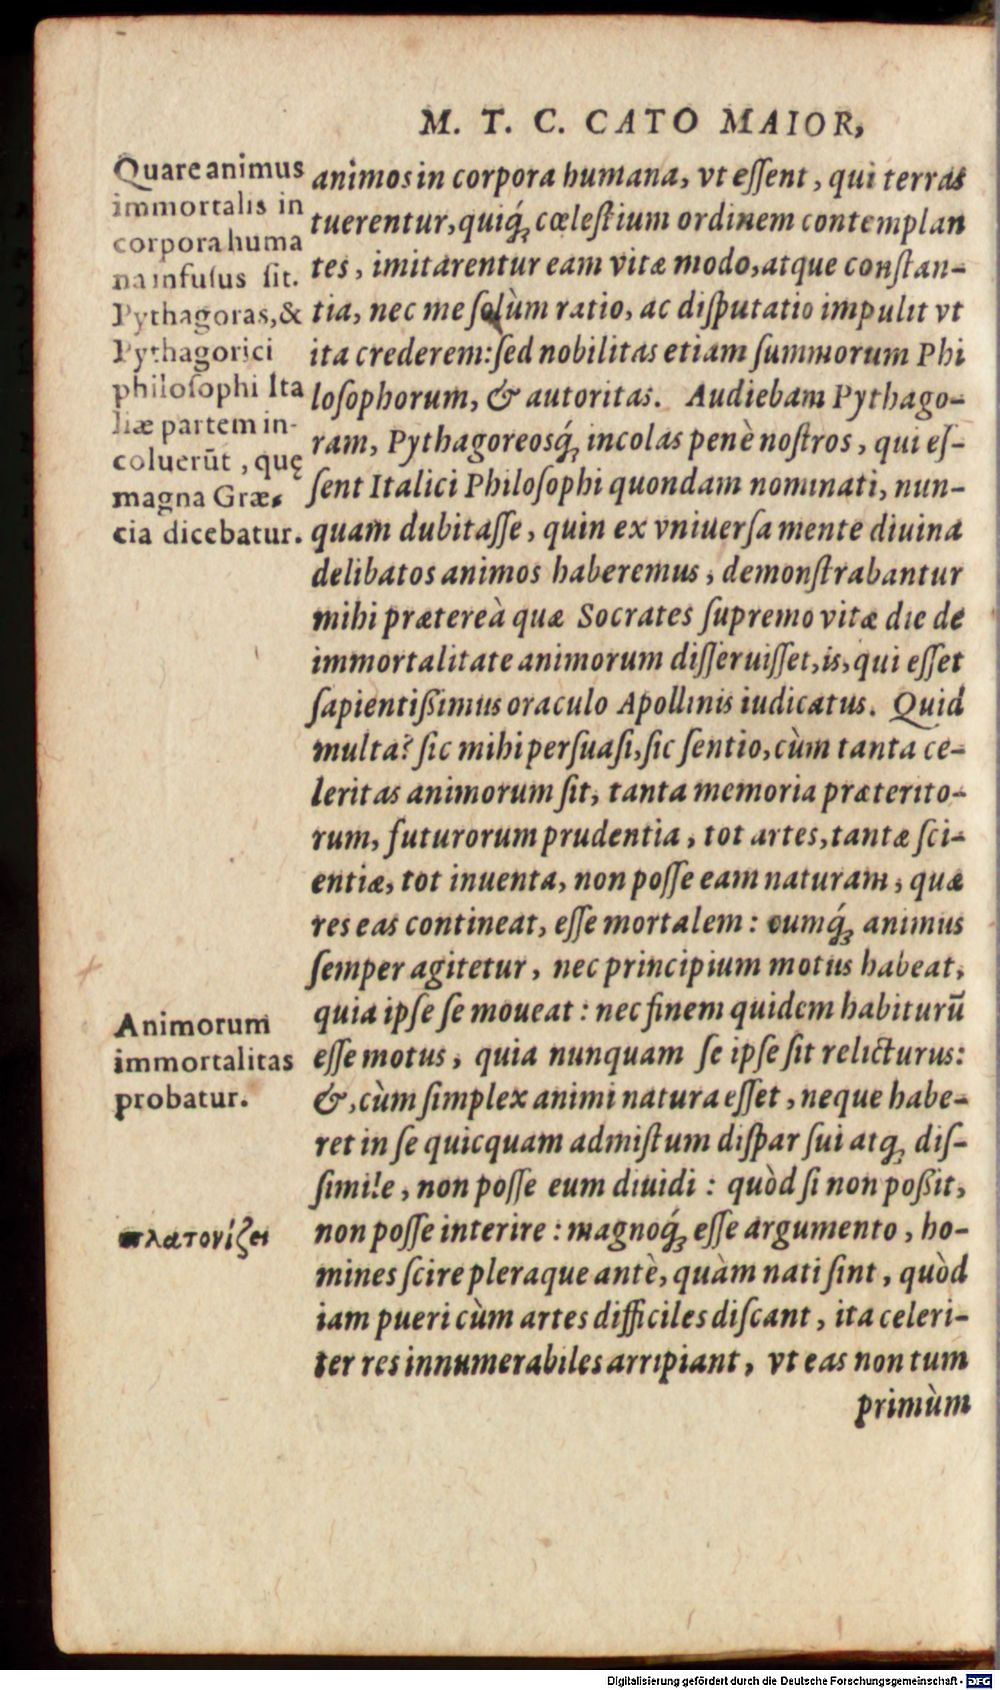 M. T. C. CATO MAIOR,
Quare animus
immortalis in
corpora huma
na infusus sit.
Pythagoras, &
Pythagorici
philosophi Ita
liæ partem in-
coluerũt, quę
magna Græ-
cia dicebatur.
animos in corpora humana, vt eſſent, qui terras
tuerentur, quiq́; cœleſtium ordinem contemplan
tes, imitarentur eam vitæ modo, atque conſtan-
tia, nec me ſolùm ratio, ac diſputatio impulit vt
ita crederem: ſed nobilitas etiam ſummorum Phi
loſophorum, & autoritas. Audiebam Pythago-
ram, Pythagoreosq́; incolas penè noſtros, qui eſ-
ſent Italici Philoſophi quondam nominati, nun-
quam dubitaſſe, quin ex vniuerſa mente diuina
delibatos animos haberemus, demonſtrabantur
mihi prætereà quæ Socrates ſupremo vitæ die de
immortalitate animorum diſſeruiſſet, is, qui eſſet
ſapientißimus oraculo Apollinis iudicatus. Quid
multa? ſic mihi perſuaſi, ſic ſentio, cùm tanta ce-
leritas animorum ſit, tanta memoria præterito-
rum, futurorum prudentia, tot artes, tantæ ſci-
entiæ, tot inuenta, non poſſe eam naturam, quæ
res eas contineat, eſſe mortalem: cumq́; animus
ſemper agitetur, nec principium motus habeat,
quia ipſe ſe moueat: nec finem quidem habiturũ
eſſe motus, quia nunquam ſe ipſe ſit relicturus:
&, cùm ſimplex animi natura eſſet, neque habe-
ret in ſe quicquam admiſtum diſpar ſui atq; diſ-
ſimile, non poſſe eum diuidi: quòd ſi non poßit,
non poſſe interire: magnoq́; eſſe argumento, ho-
mines ſcire pleraque antè, quàm nati ſint, quòd
iam pueri cùm artes difficiles diſcant, ita celeri-
ter res innumerabiles arripiant, vt eas non tum
primùm
Animorum
immortalitas
probatur.
πλατονίζει
Digitalisierung gefördert durch die Deutsche Forschungsgemeinschaft - DFG